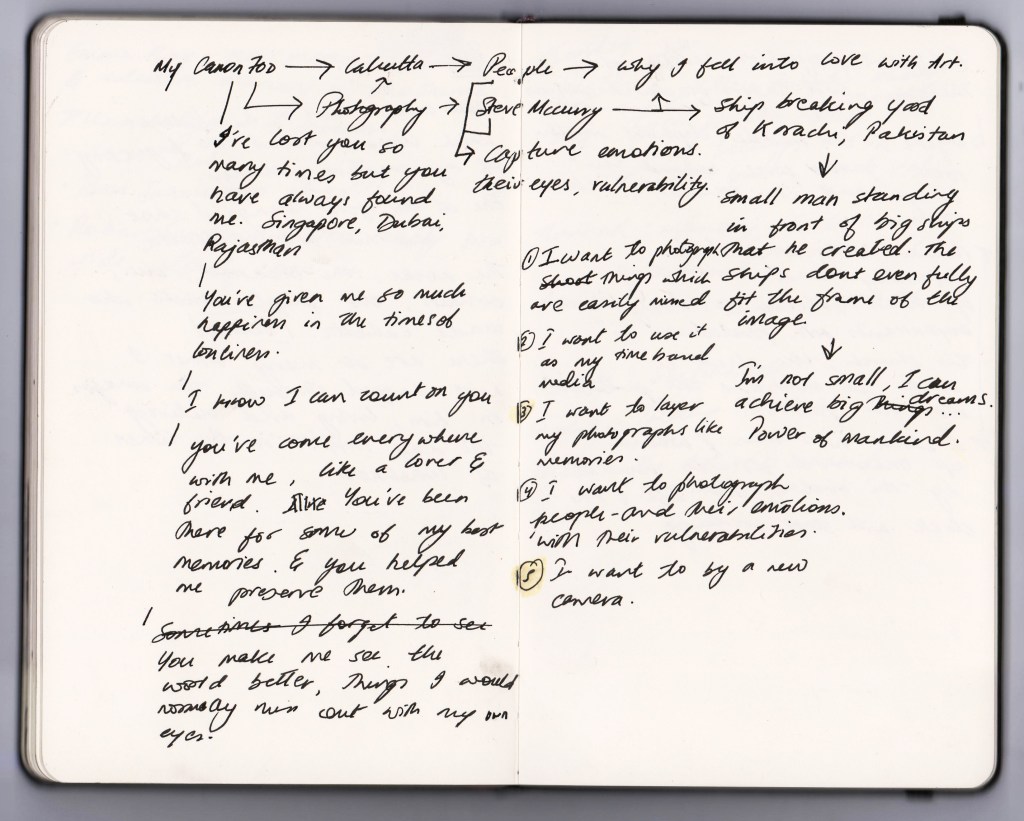 My Canon 70D → Calcutta → People → why I fell into love with Art.
→ Photography → Steve Mccurry → ship breaking yard
of Karachi, Pakistan
Capture emotions.
their eyes, vulnerability.
I've lost you so
many times but you
have always found
me. Singapore, Dubai,
Rajasthan
You've given me so much
happiness in the times of
lonliness.
I know I can count on you
you've come everywhere
with me, like a lover &
friend. Alike You've been
there for some of my best
memories. & you helped
me preserve them.
Sometimes I forget to see
You make me see the
world better, things I would
normally miss out with my own
eyes.
small man standing
in front of big ships
that he created. The
ships dont even fully
fit the frame of the
image.
↓
I'm not small, I can
achieve big things... dreams.
Power of mankind.
① I want to photograph
shoot things which
are easily missed
② I want to use it
as my time band
media
③ I want to layer
my photographs like
memories.
④ I want to photograph
people and their emotions.
with their vulnerabilities.
⑤ I want to by a new
camera.